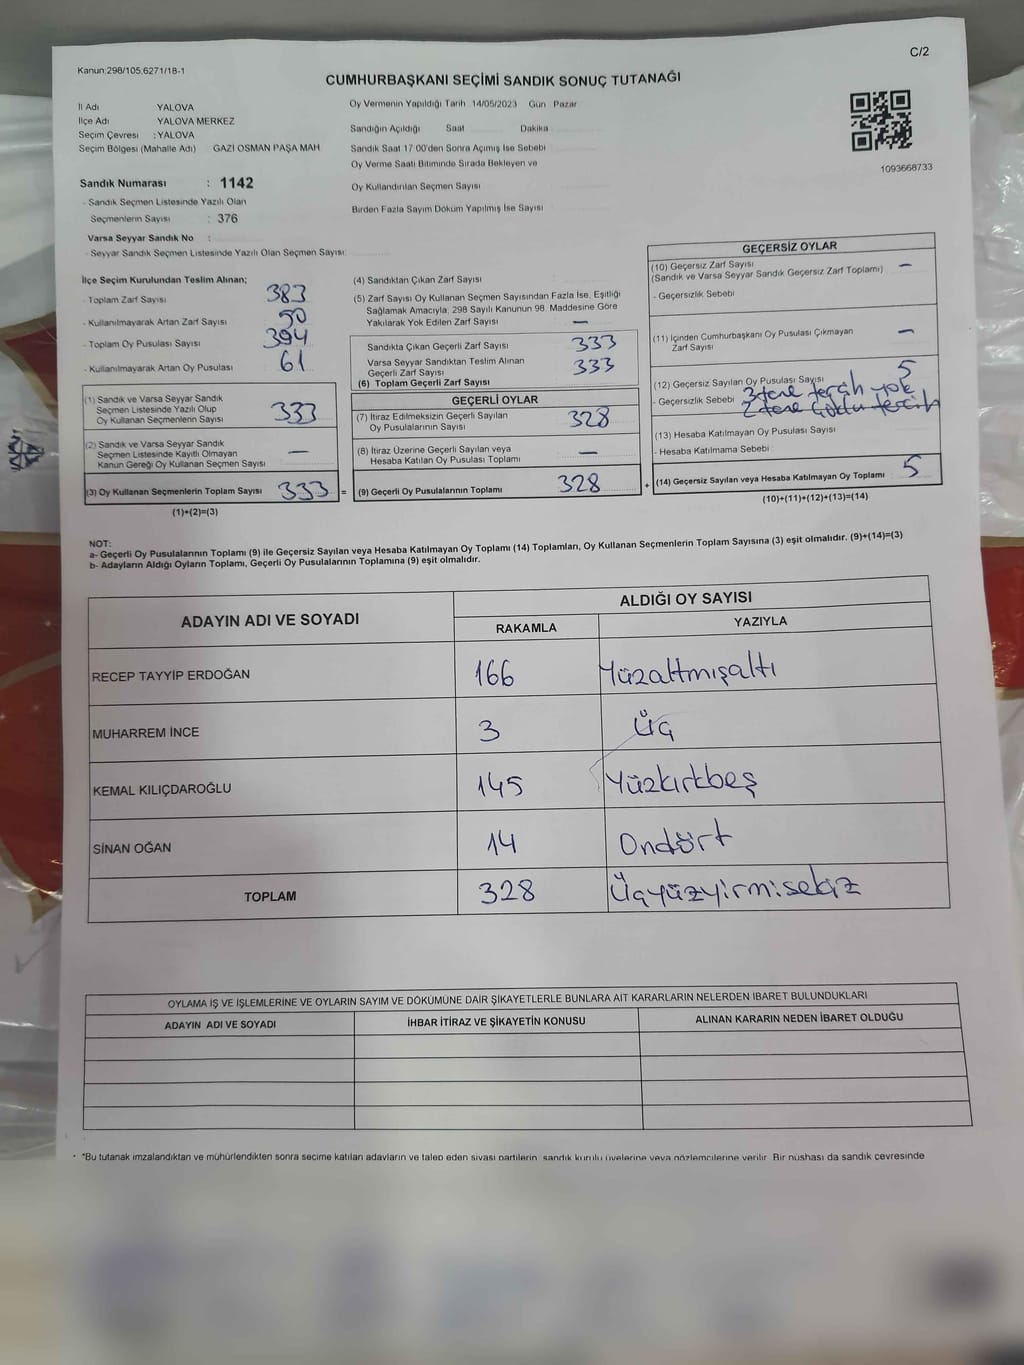 C/2
Kanun:298/105,6271/18-1
CUMHURBAŞKANI SEÇİMİ SANDIK SONUÇ TUTANAĞI
İl Adı YALOVA
İlçe Adı YALOVA MERKEZ
Seçim Çevresi : YALOVA
Seçim Bölgesi (Mahalle Adı) GAZİ OSMAN PAŞA MAH
Sandık Numarası : 1142
- Sandık Seçmen Listesinde Yazılı Olan
Seçmenlerin Sayısı : 376
Varsa Seyyar Sandık No :
- Seyyar Sandık Seçmen Listesinde Yazılı Olan Seçmen Sayısı:
Oy Vermenin Yapıldığı Tarih 14/05/2023 Gün Pazar
Sandığın Açıldığı Saat Dakika
Sandık Saat 17 00'den Sonra Açımış İse Sebebi
Oy Verme Saati Bitiminde Sırada Bekleyen ve
Oy Kullandırılan Seçmen Sayısı
Birden Fazla Sayım Döküm Yapılmış İse Sayısı
1093668733
İlçe Seçim Kurulundan Teslim Alınan;
- Toplam Zarf Sayısı 383
- Kullanılmayarak Artan Zarf Sayısı 50
- Toplam Oy Pusulası Sayısı 394
- Kullanılmayarak Artan Oy Pusulası 61
(1) Sandık ve Varsa Seyyar Sandık
Seçmen Listesinde Yazılı Olup
Oy Kullanan Seçmenlerin Sayısı 333
(2) Sandık ve Varsa Seyyar Sandık
Seçmen Listesinde Kayıtlı Olmayan
Kanun Gereği Oy Kullanan Seçmen Sayısı —
(3) Oy Kullanan Seçmenlerin Toplam Sayısı 333 =
(1)+(2)=(3)
(4) Sandıktan Çıkan Zarf Sayısı
(5) Zarf Sayısı Oy Kullanan Seçmen Sayısından Fazla İse, Eşitliği
Sağlamak Amacıyla, 298 Sayılı Kanunun 98. Maddesine Göre
Yakılarak Yok Edilen Zarf Sayısı —
Sandıkta Çıkan Geçerli Zarf Sayısı 333
Varsa Seyyar Sandıktan Teslim Alınan
Geçerli Zarf Sayısı 333
(6) Toplam Geçerli Zarf Sayısı
GEÇERLİ OYLAR
(7) İtiraz Edilmeksizin Geçerli Sayılan
Oy Pusulalarının Sayısı 328
(8) İtiraz Üzerine Geçerli Sayılan veya
Hesaba Katılan Oy Pusulası Toplamı —
(9) Geçerli Oy Pusulalarının Toplamı 328 +
GEÇERSİZ OYLAR
(10) Geçersiz Zarf Sayısı —
(Sandık ve Varsa Seyyar Sandık Geçersiz Zarf Toplamı)
- Geçersizlik Sebebi
(11) İçinden Cumhurbaşkanı Oy Pusulası Çıkmayan —
Zarf Sayısı
(12) Geçersiz Sayılan Oy Pusulası Sayısı 5
- Geçersizlik Sebebi 3 tane tercih yok
2 tane çoklu tercih
(13) Hesaba Katılmayan Oy Pusulası Sayısı
- Hesaba Katılmama Sebebi
(14) Geçersiz Sayılan veya Hesaba Katılmayan Oy Toplamı 5
(10)+(11)+(12)+(13)=(14)
NOT:
a- Geçerli Oy Pusulalarının Toplamı (9) ile Geçersiz Sayılan veya Hesaba Katılmayan Oy Toplamı (14) Toplamları, Oy Kullanan Seçmenlerin Toplam Sayısına (3) eşit olmalıdır. (9)+(14)=(3)
b- Adayların Aldığı Oyların Toplamı, Geçerli Oy Pusulalarının Toplamına (9) eşit olmalıdır.
ADAYIN ADI VE SOYADI ALDIĞI OY SAYISI
RAKAMLA YAZIYLA
RECEP TAYYİP ERDOĞAN 166 Yüzaltmışaltı
MUHARREM İNCE 3 Üç
KEMAL KILIÇDAROĞLU 145 Yüzkırkbeş
SİNAN OĞAN 14 Ondört
TOPLAM 328 Üçyüzyirmisekiz
OYLAMA İŞ VE İŞLEMLERİNE VE OYLARIN SAYIM VE DÖKÜMÜNE DAİR ŞİKAYETLERLE BUNLARA AİT KARARLARIN NELERDEN İBARET BULUNDUKLARI
ADAYIN ADI VE SOYADI İHBAR İTİRAZ VE ŞİKAYETİN KONUSU ALINAN KARARIN NEDEN İBARET OLDUĞU
*Bu tutanak imzalandıktan ve mühürlendikten sonra seçime katılan adayların ve talep eden siyasi partilerin, sandık kurulu üyelerine veya gözlemcilerine verilir. Bir nüshası da sandık çevresinde